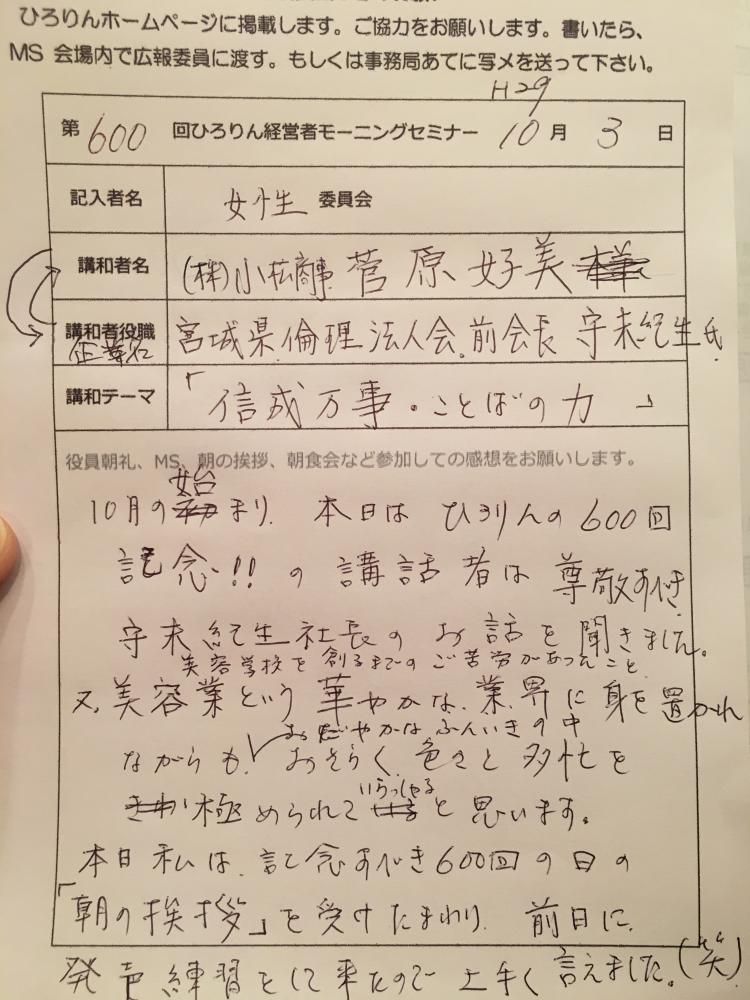 ひろりんホームページに掲載します。ご協力をお願いします。書いたら、
MS 会場内で広報委員に渡す。もしくは事務局あてに写メを送って下さい。
H29
第 600 回ひろりん経営者モーニングセミナー 10 月 3 日
記入者名 女性 委員会
講和者名 (株)小松商事 菅原 好美 様
講和者役職 宮城県倫理法人会 前会長 守末紀生氏
企業名
講和テーマ 「信成万事・ことばの力」
役員朝礼、MS、朝の挨拶、朝食会など参加しての感想をお願いします。
始
10月の初まり、本日は ひろりんの600回
記念!! の 講話者は 尊敬すべき
守末紀生社長の お話を聞きました。
美容学校を創るまでのご苦労があったこと
又、美容業という 華やかな 業界に 身を置かれ
おだやかなふんいきの中
ながらも、おそらく 色々と 多忙を
いらっしゃる
極められて と 思います。
本日 私は、記念すべき600回の日の
「朝の挨拶」を受けたまわり、前日に
発声練習をして来たので 上手く 言えました。(笑)